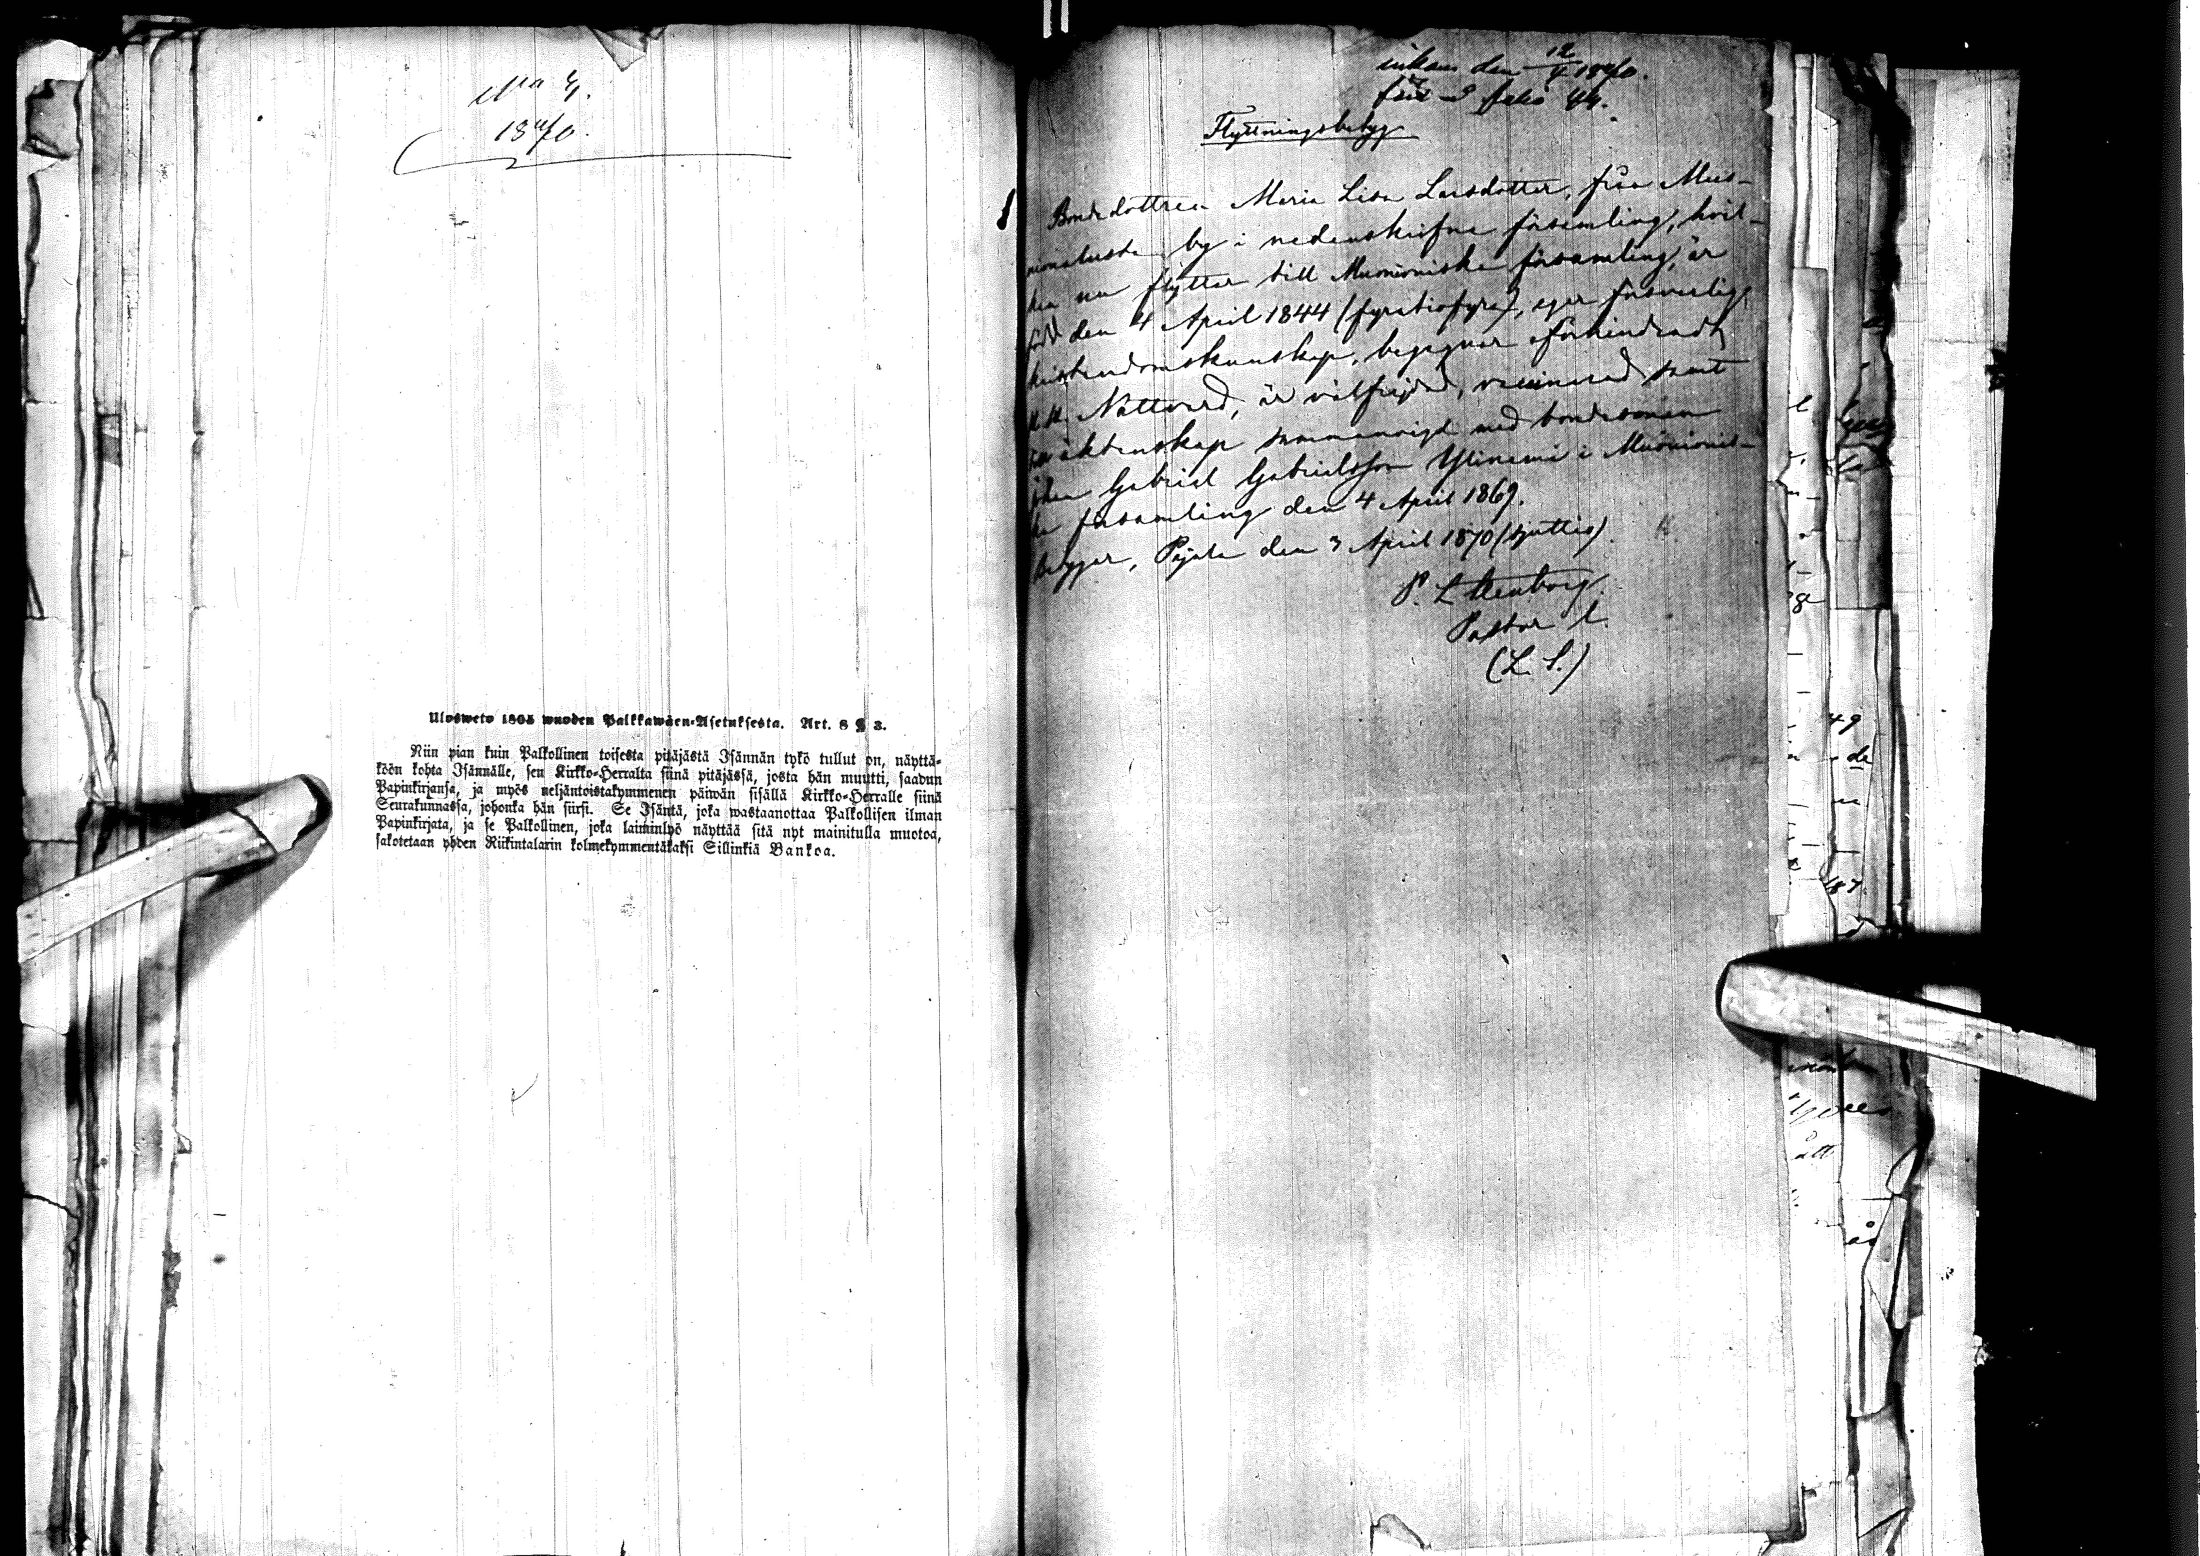 N:o 4.
1870.
Ulosweto 1805 wuoden Palkkawäen-Asetuksesta. Art. 8 § 3.
Niin pian kuin Palkollinen toisesta pitäjästä Isännän tykö tullut on, näyttä-
köön kohta Isännälle, sen Kirkko-Herralta siinä pitäjässä, josta hän muutti, saadun
Papinkirjansa, ja myös neljäntoistakymmenen päiwän sisällä Kirkko-Herralle siinä
Seurakunnassa, johonka hän siirsi. Se Isäntä, joka wastaanottaa Palkollisen ilman
Papinkirjata, ja se Palkollinen, joka laiminlyö näyttää sitä nyt mainitulla muotoa,
sakotetaan yhden Riikintalarin kolmekymmentäkaksi Sillinkiä Bankoa.
inkom den 12/4 1870.
folio 44.
Flyttningsbetyg
Bondedottren Maria Lisa Larsdotter, från Muo-
nionalusta by i nedanskrifne församling, hvil-
ken nu flyttar till Muonioniska församling, är
född den 4 April 1844 (fyratiofyra), eger försvarlig
kristendomskunskap, begagnar oförhindradt
H. H. Nattvard, är välfrejdad, vaccinerad samt
äktenskap sammanvigd med bondesonen
Johan Gabriel Gabrielsson Ylinemi i Muonionis-
ka församling den 4 April 1869.
betygar, Pajala den 3 April 1870 (sjuttio).
P. L. Stenborg.
Pastor l.
(L. S.)